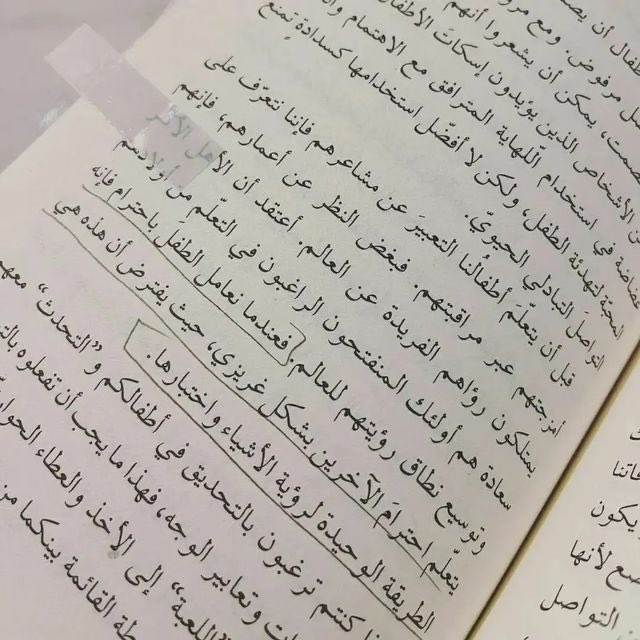 طفال أن
ل مرفوض. ومع مرو
صمت، يمكن أن يشعروا أنهم
الأشخاص الذين يؤيدون إسكات الأطفال
في استخدام اللّهاية المترافق مع الاهتمام
لتهدئة الطفل، ولكن لا أفضّل استخدامها كسدادة تمنع
التواصل التبادلي الحيويّ.
قبل أن يتعلّم أطفالنا التعبير عن مشاعرهم فإننا نتعرّف على
أمزجتهم عبر مراقبتهم. فبغض النظر عن أعمارهم، فإنهم
يمتلكون رؤاهم الفريدة عن العالم. أعتقد أن الأهل الأكثر
سعادة هم أولئك المنفتحون الراغبون في التعلّم من أولادهم
وتوسيع نطاق رؤيتهم للعالم. فعندما نعامل الطفل باحترام فإنه
يتعلّم احترام الآخرين بشكل غريزي، حيث يفترض أن هذه هي
الطريقة الوحيدة لرؤية الأشياء واختبارها.
كنتم ترغبون بالتحديق في أطفالكم و"التحدث" معهم
ت وتعابير الوجه، فهذا ما يجب أن تفعلوه
"اللعبة" إلى الأخذ والعطاء
القائمة بينكما
فاتنا
يكون
لأنها
التواصل